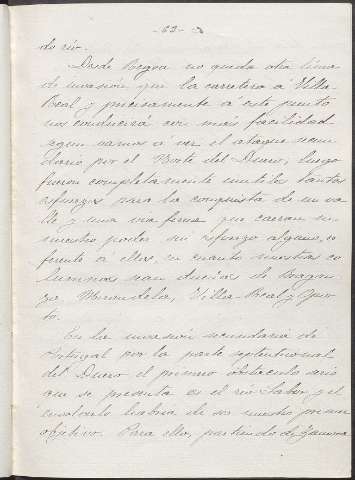 -63-
do río.
Desde Regoa no queda otra línea
de invasión que la carretera á Villa-
Real y precisamente á este punto
nos conducirá con mas facilidad
segun vamos á ver el ataque secun-
dario por el Norte del Duero; luego
fueron completamente inutiles tantos
esfuerzos para la conquista de un va-
lle y una via ferrea que caeran en
nuestro poder sin esfuerzo alguno, co
ferente á ellos, en cuanto nuestras co
lumnas sean dueñas de Bragan-
za, Mirandela, Villa-Real y Opor-
to.
En la invasión secundaria de
Portugal por la parte septentrional
del Duero el primer obstáculo serio
que se presenta es el río Sabor, y el
envolverlo habria de ser nuestro primer
objetivo. Para ello, partiendo de Zamora